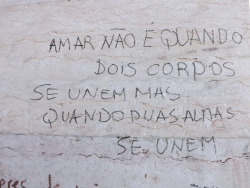 AMAR NÃO É QUANDO
DOIS CORPOS
SE UNEM MAS
QUANDO DUAS ALMAS
SE UNEM